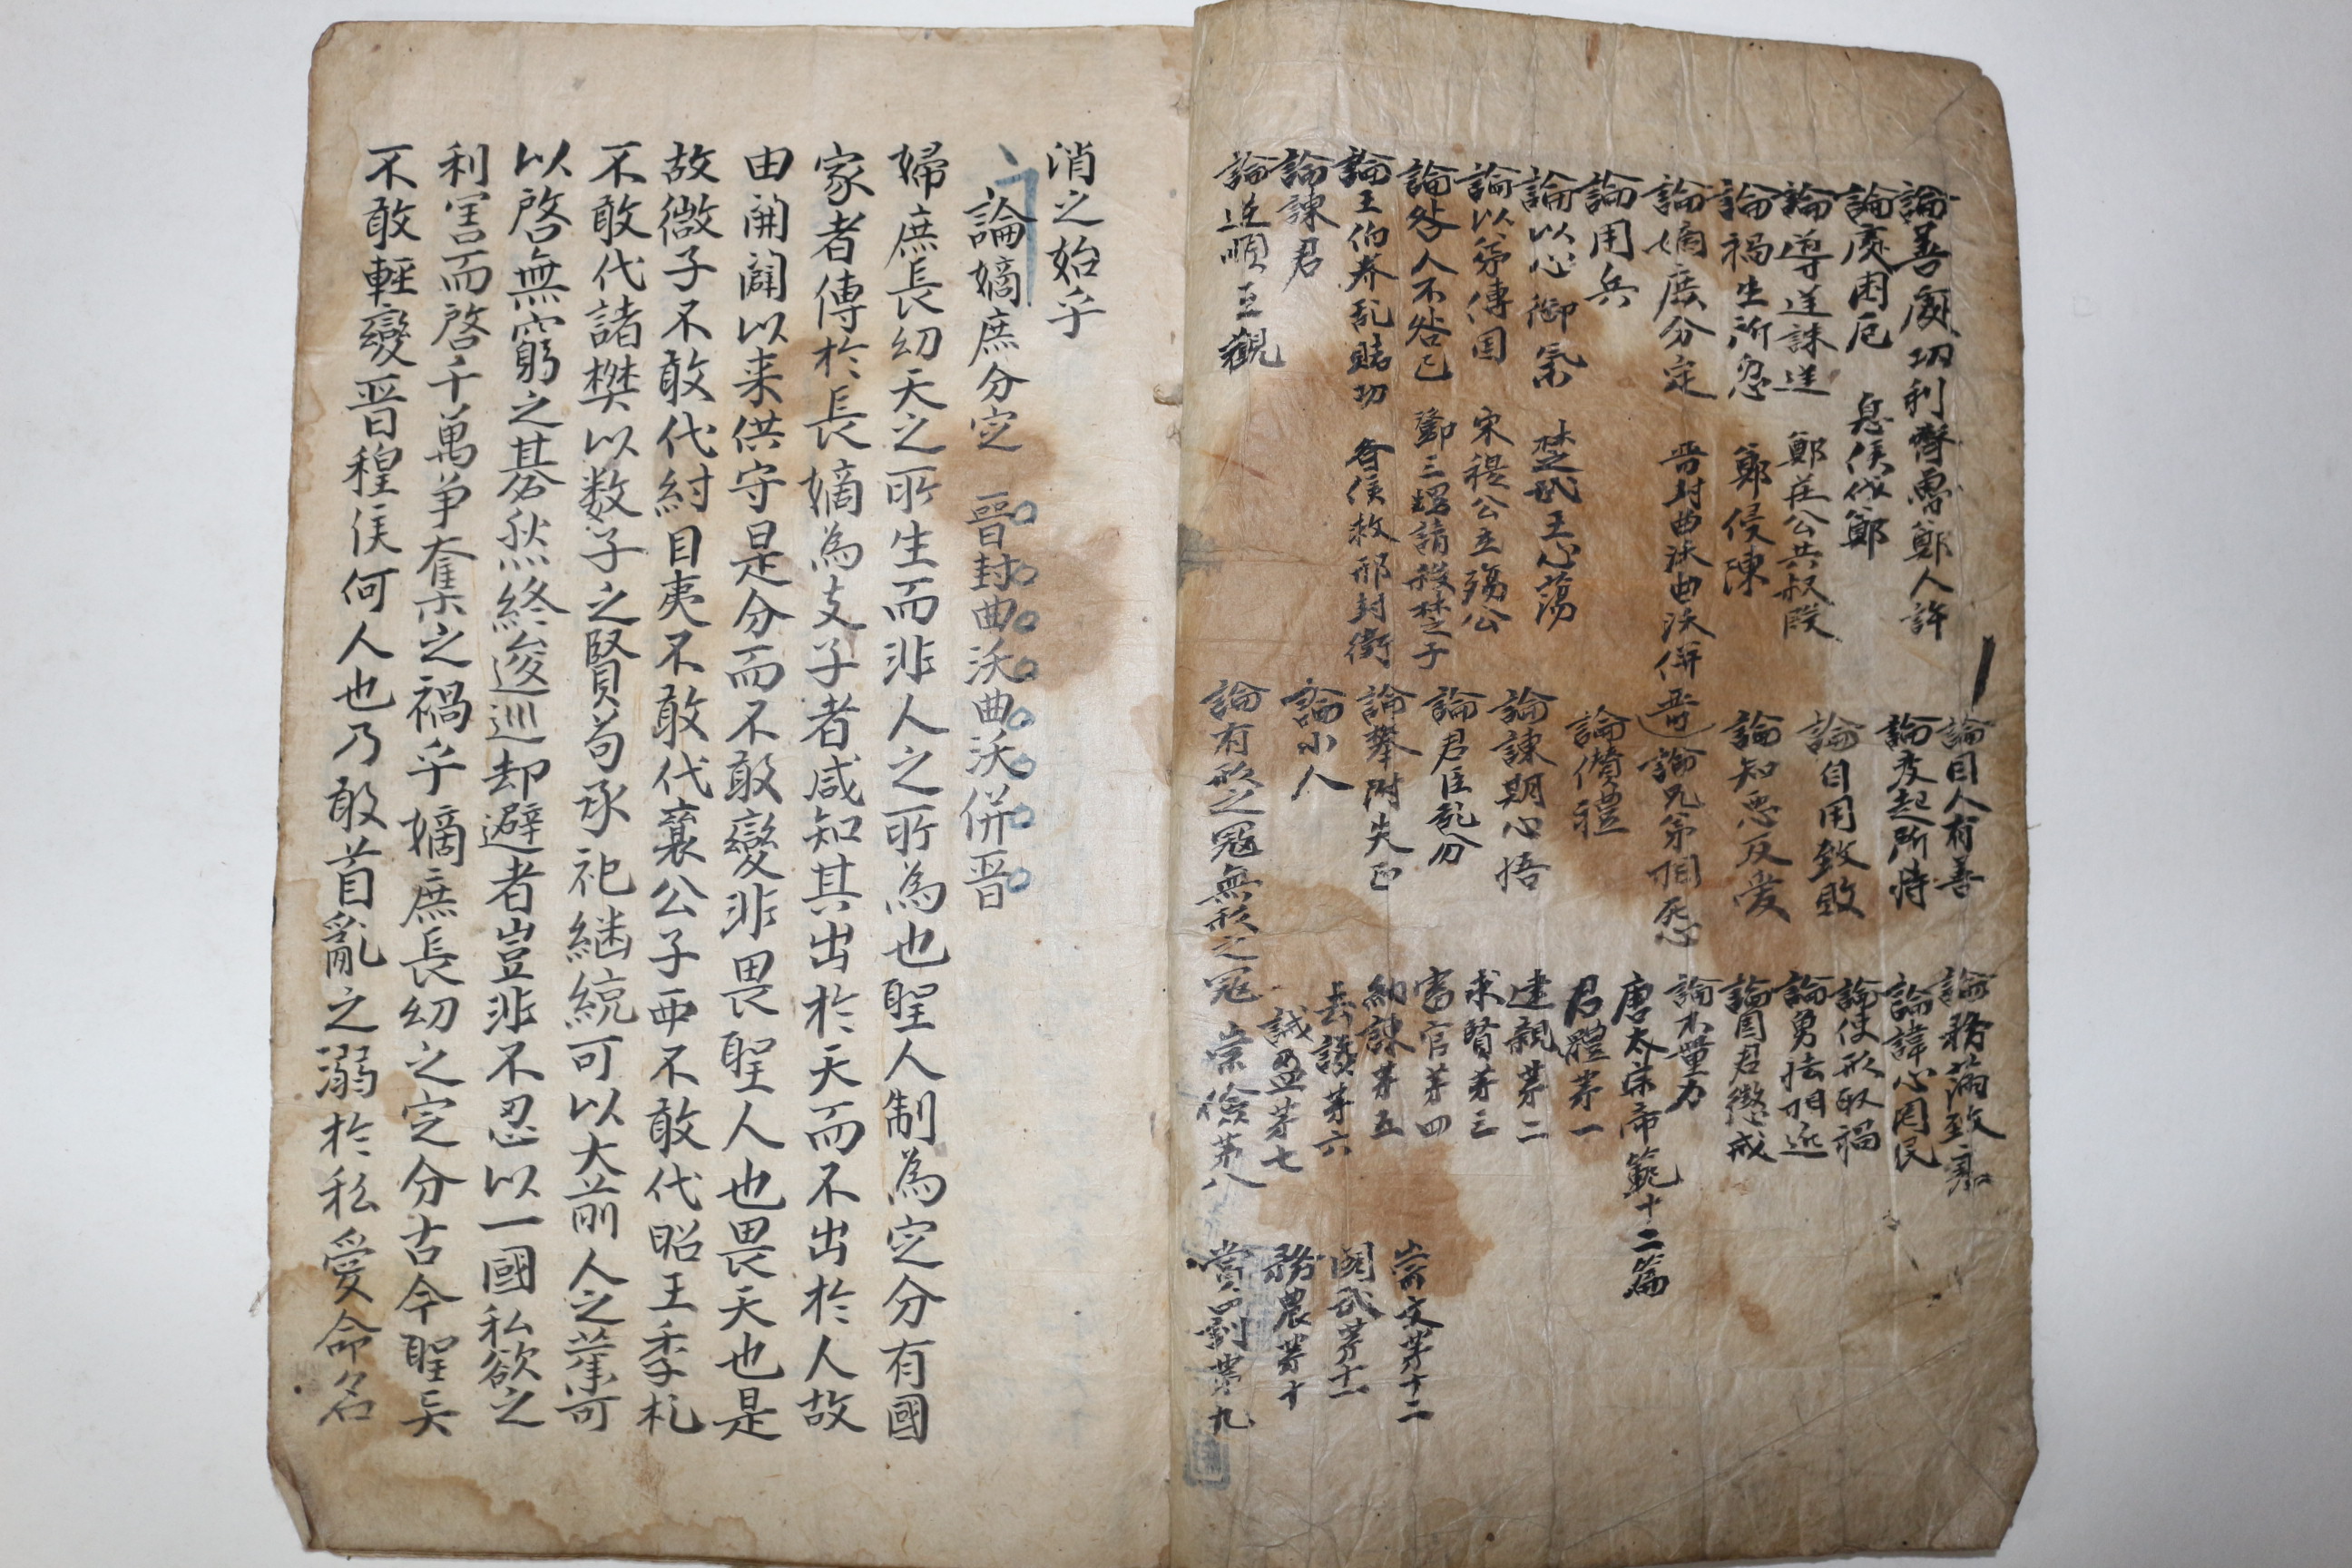 論善處功利齊魯鄭人許
論處困厄 息侯伐鄭
論導逆誅逆 鄭莊公共叔段
論禍生所忽 鄭侵陳
論嫡庶分定 晋封曲沃曲沃併晋
論用兵
論以心御氣 楚武王心荡
論以弟傳国 宋穆公立殤公
論咎人不咎己 鄧三甥請殺楚子
論王伯养乱賭功 齊侯救邢封衛
論諫君
論逆順互觀
論因人有善
論変起所恃
論自用致敗
論知惡反爱
論兄弟相怨
論僭禮
論諫期心悟
論君臣乱分
論攀附失正
論小人
論有形之冦無形之冦
論務滿致
論諱心罔民
論使形取禍
論勇怯相近
論国君懲戒
論不量力
唐太宗帝範十二篇
君體第一
建親第二
求賢第三
審官第四
納諫第五
去讒第六
誡盈第七
崇儉第八
賞罰第九
務農第十
閱武第十一
崇文第十二
消之始乎
論嫡庶分定 晋封曲沃曲沃併晋
婦庶長幼天之所生而非人之所為也聖人制為定分有國
家者傳於長嫡為支子者咸知其出於天而不出於人故
由開闢以来供守是分而不敢變非畏聖人也畏天也是
故微子不敢代紂目夷不敢代襄公子西不敢代昭王季札
不敢代諸樊以数子之賢苟承祀継統可以大前人之業可
以啓無窮之基然終逡巡却避者豈非不忍以一國私欲之
利害而啓千萬争奪之禍乎嫡庶長幼之定分古今聖矣
不敢輕變晋穆侯何人也乃敢首亂之溺於私愛命名